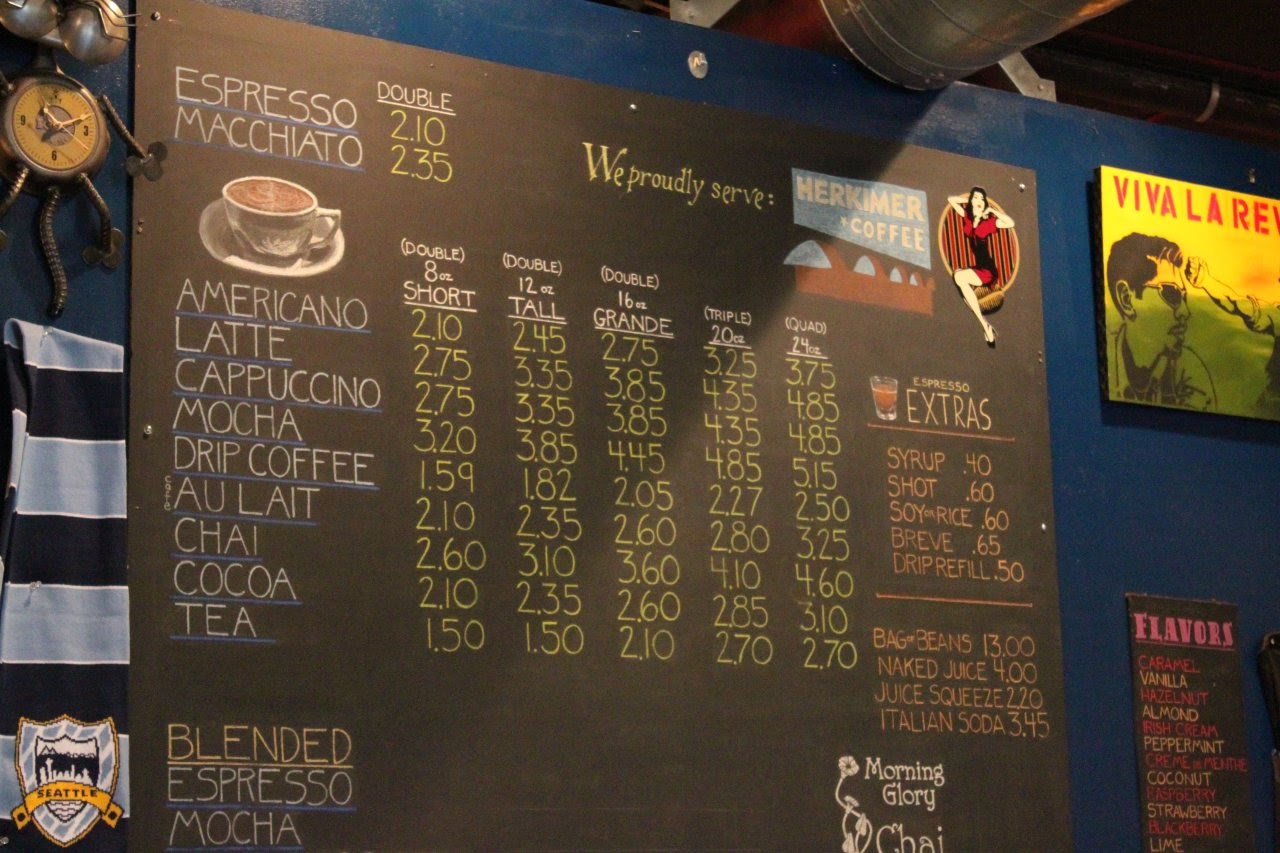 ESPRESSO
MACCHIATO
DOUBLE
2.10
2.35
We proudly serve:
HERKIMER
COFFEE
(DOUBLE) (DOUBLE) (DOUBLE) (TRIPLE) (QUAD)
8oz 12 oz 16 oz 20oz 24oz
SHORT TALL GRANDE
AMERICANO 2.10 2.45 2.75 3.25 3.75
LATTE 2.75 3.35 3.85 4.35 4.85
CAPPUCCINO 2.75 3.35 3.85 4.35 4.85
MOCHA 3.20 3.85 4.45 4.85 5.15
DRIP COFFEE 1.59 1.82 2.05 2.27 2.50
AU LAIT 2.10 2.35 2.60 2.80 3.25
CHAI 2.60 3.10 3.60 4.10 4.60
COCOA 2.10 2.35 2.60 2.85 3.10
TEA 1.50 1.50 2.10 2.70 2.70
BLENDED
ESPRESSO
MOCHA
ESPRESSO
EXTRAS
SYRUP .40
SHOT .60
SOY or RICE .60
BREVE .65
DRIP REFILL .50
BAG OF BEANS 13.00
NAKED JUICE 4.00
JUICE SQUEEZE 2.20
ITALIAN SODA 3.45
Morning
Glory
Chai
VIVA LA REV
FLAVORS
CARAMEL
VANILLA
HAZELNUT
ALMOND
IRISH CREAM
PEPPERMINT
CREME DE MENTHE
COCONUT
RASPBERRY
STRAWBERRY
BLACKBERRY
LIME
SEATTLE
9
3
6